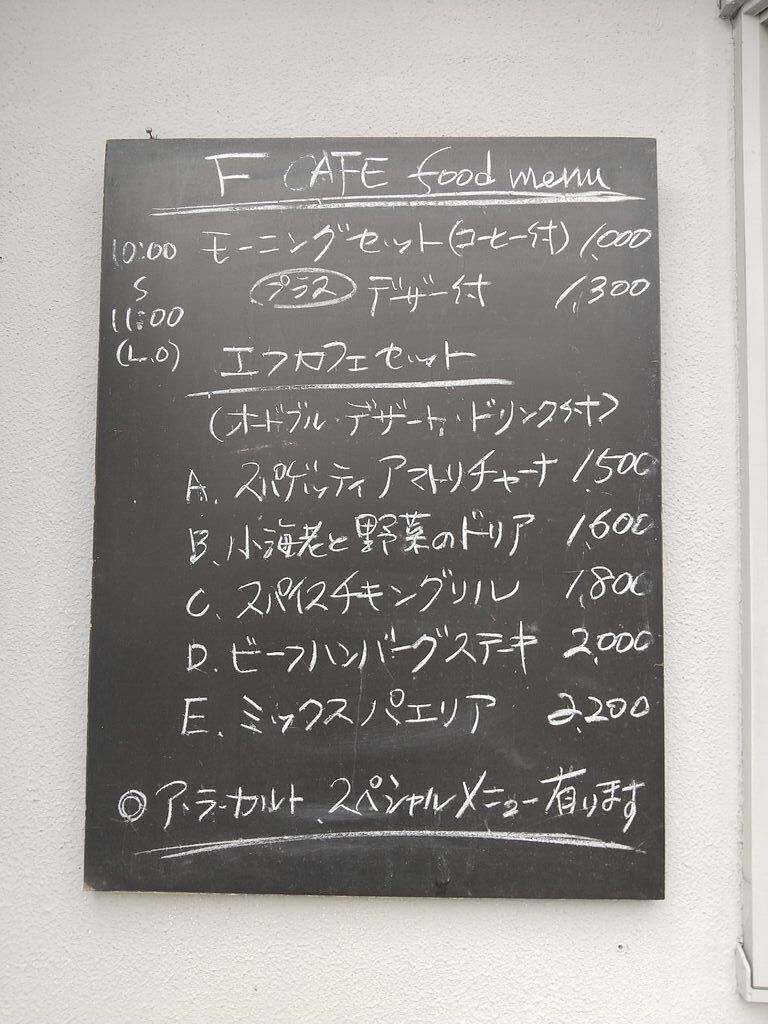 F CAFE food menu
10:00
モーニングセット(コーヒー付) 1,000
S
プラス デザート付 1,300
11:00
(L.O)
エフカフェセット
(オードブル・デザート・ドリンク付)
A. スパゲッティ アマトリチャーナ 1,500
B. 小海老と野菜のドリア 1,600
C. スパイスチキングリル 1,800
D. ビーフハンバーグステーキ 2,000
E. ミックスパエリア 2,200
◎ア・ラ・カルト、スペシャルメニュー有ります